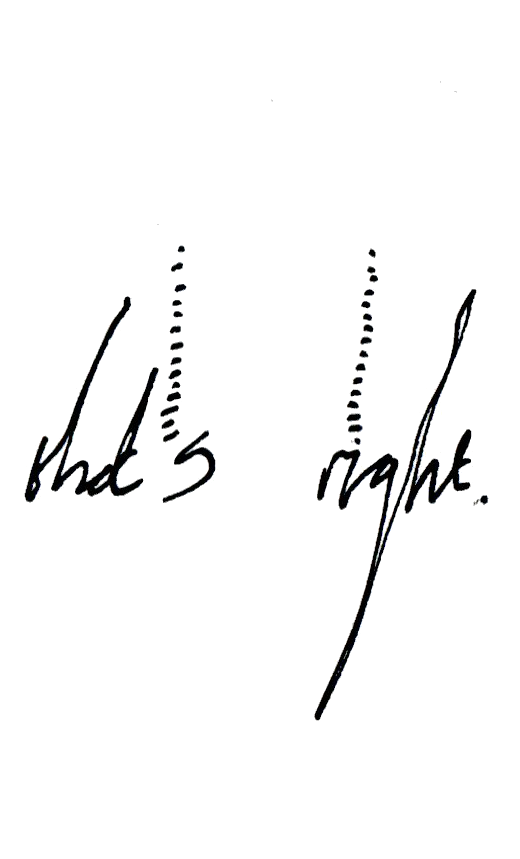 that's right.